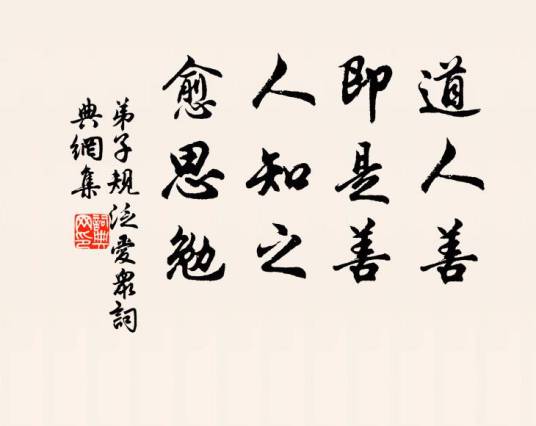 道人善
即是善
人知之
愈思勉
弟子規泛愛衆詞
典網集
詞典
网印